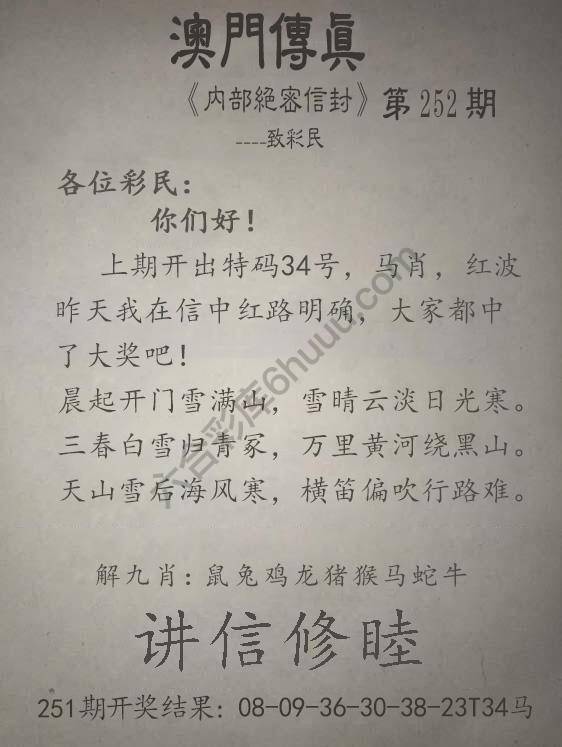 澳門傳眞
《内部絕密信封》第252期
----致彩民
各位彩民：
你们好！
上期开出特码34号，马肖，红波
昨天我在信中红路明确，大家都中
了大奖吧！
晨起开门雪满山，雪晴云淡日光寒。
三春白雪归青冢，万里黄河绕黑山。
天山雪后海风寒，横笛偏吹行路难。
六合彩库6huuu.com
解九肖：鼠兔鸡龙猪猴马蛇牛
讲信修睦
251期开奖结果：08-09-36-30-38-23T34马